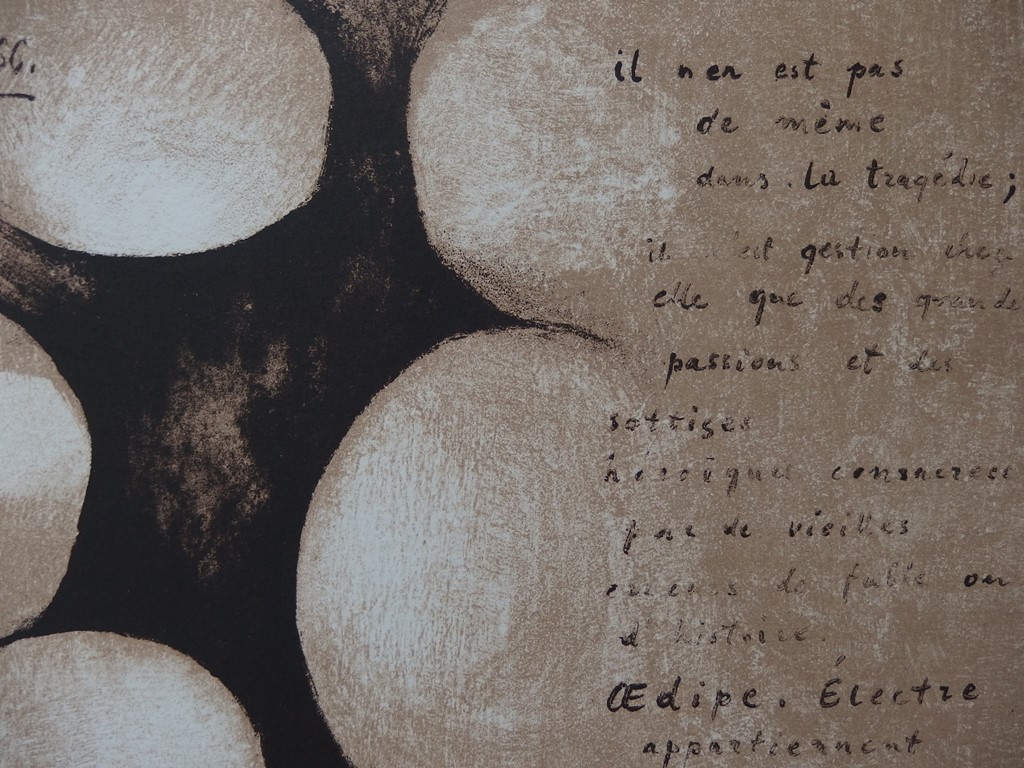 56.
il n'en est pas
de même
dans la tragédie;
il n'est question chez
elle que des grandes
passions et des
sottises
héroïques consacrées
par de vieilles
erreurs de fable ou
d'histoire.
Œdipe. Électre
appartiennent